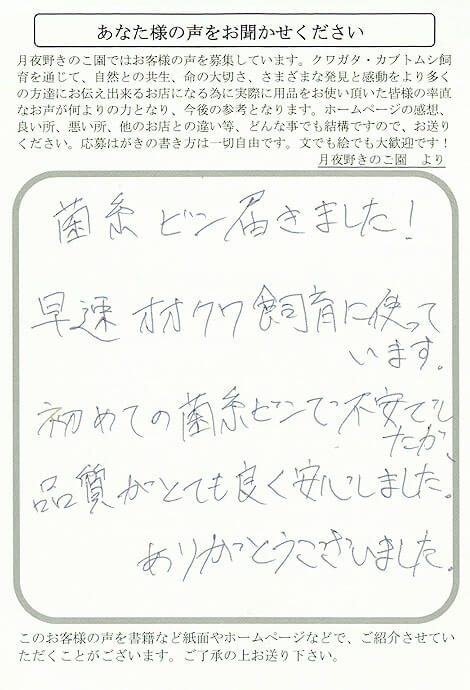 あなた様の声をお聞かせください
月夜野きのこ園ではお客様の声を募集しています。クワガタ・カブトムシ飼
育を通じて、自然との共生、命の大切さ、さまざまな発見と感動をより多く
の方達にお伝え出来るお店になる為に実際に用品をお使い頂いた皆様の率直
なお声が何よりの力となり、今後の参考となります。ホームページの感想、
良い所、悪い所、他のお店との違い等、どんな事でも結構ですので、お送り
ください。応募はがきの書き方は一切自由です。文でも絵でも大歓迎です！
月夜野きのこ園　より
菌糸ビン届きました！
早速オオクワ飼育に使って
います。
初めての菌糸ビンで不安でし
たが、
品質がとても良く安心しました。
ありがとうございました。
このお客様の声を書籍など紙面やホームページなどで、ご紹介させてい
ただくことがございます。ご了承の上お送り下さい。